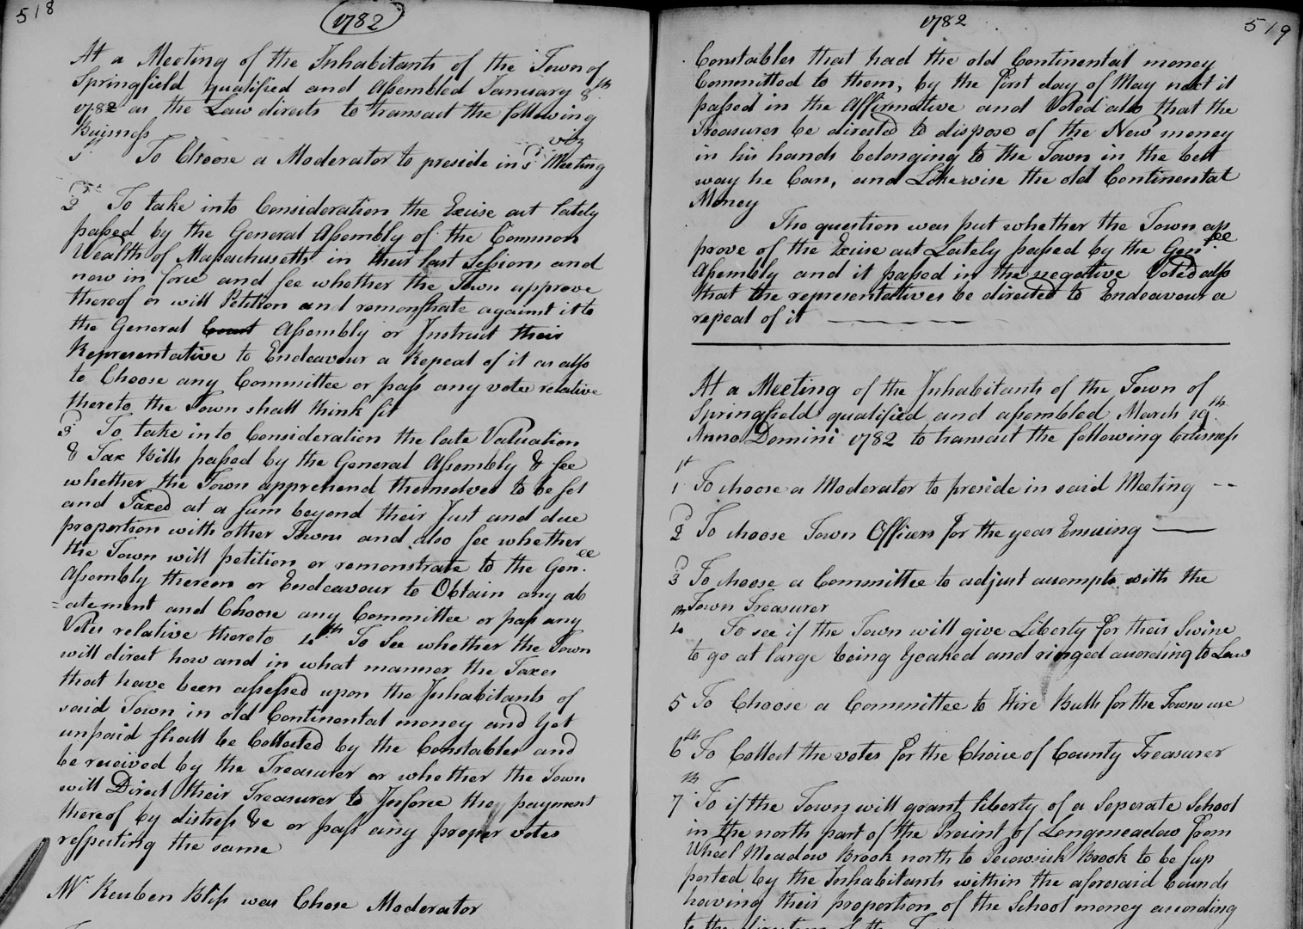 518
1782
At a Meeting of the Inhabitants of the Town of
Springfield qualified and Assembled January 8th
1782 as the Law directs to transact the following
Buisness viz
1st To Choose a Moderator to preside in sd Meeting
2d To take into Consideration the Excise act lately
passed by the General Assembly of the Common
Wealth of Massachusetts in their last Sessions and
now in force and see whether the Town approve
thereof or will Petition and remonstrate against it to
the General Court Assembly or Instruct their
Representative to Endeavour a Repeal of it as also
to Choose any Committee or pass any votes relative
thereto the Town shall think fit
3d To take into Consideration the late Valuation
& Tax Bills passed by the General Assembly & see
whether the Town apprehend themselves to be set
and Taxed at a sum beyond their Just and due
proportion with other Towns and also see whether
the Town will petition or remonstrate to the Genee
Assembly thereon or Endeavour to Obtain any ab
=atement and Choose any Committee or pass any
Votes relative thereto 4th To See whether the Town
will direct how and in what manner the Taxes
that have been assessed upon the Inhabitants of
said Town in old Continental money and yet
unpaid shall be Collected by the Constables and
be received by the Treasurer or whether the Town
will Direct their Treasurer to Inforce the payment
thereof by distress &c or pass any proper votes
respecting the same
Mr Reuben Bliss was Chose Moderator
1782
519
Constables that had the old Continental money
Committed to them, by the first day of May next it
passed in the Affirmative and Voted also that the
Treasurer be directed to dispose of the New money
in his hands belonging to the Town in the best
way he Can, and Likewise the old Continental
Money
The question was put whether the Town ap
prove of the Excise act Lately passed by the Genee
Assembly and it passed in the negative Voted also
that the representatives be directed to Endeavour a
repeal of it
At a Meeting of the Inhabitants of the Town of
Springfield qualified and assembled March 19th
Anno Domini 1782 to transact the following buisness
1st To choose a Moderator to preside in said Meeting
2d To choose Town Officers for the year Ensuing
3d To choose a Committee to adjust accompts with the
Town Treasurer
4th To see if the Town will give Liberty for their Swine
to go at large being Yoaked and ringed according to Law
5 To Choose a Committee to Hire Bulls for the Towns use
6th To Collect the votes for the Choice of County Treasurer
7th To if the Town will grant liberty of a Seperate School
in the north part of the Precint of Longmeadow from
Wheel Meadow Brook north to Pecowsick Brook to be sup
ported by the Inhabitants within the aforesaid bounds
having their proportion of the School money according